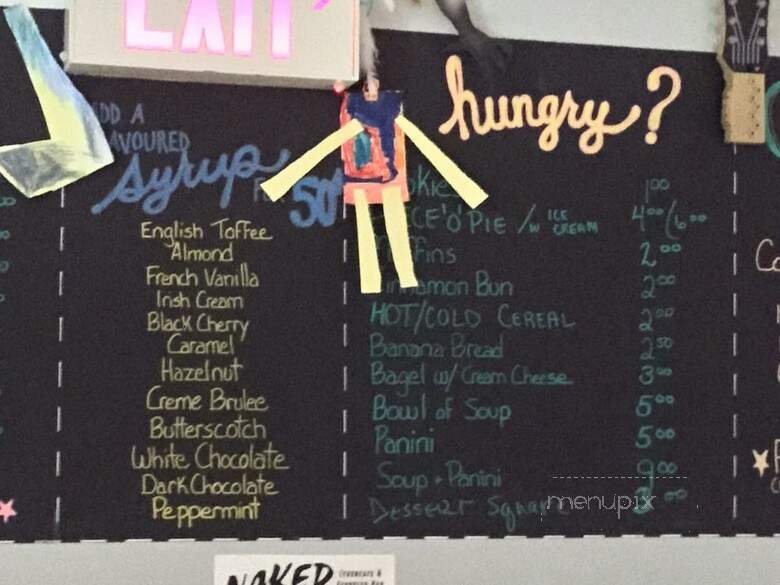 EXIT
ADD A
FLAVOURED
syrup
FOR 50¢
English Toffee
Almond
French Vanilla
Irish Cream
Black Cherry
Caramel
Hazelnut
Creme Brulee
Butterscotch
White Chocolate
Dark Chocolate
Peppermint
hungry?
1.00
'O' PIE /w ICE CREAM 4.00/6.00
2.00
Cinnamon Bun 2.00
HOT/COLD CEREAL 2.00
Banana Bread 2.50
Bagel w/ Cream Cheese 3.00
Bowl of Soup 5.00
Panini 5.00
Soup + Panini 9.00
Dessert Square
menupix
NAKED